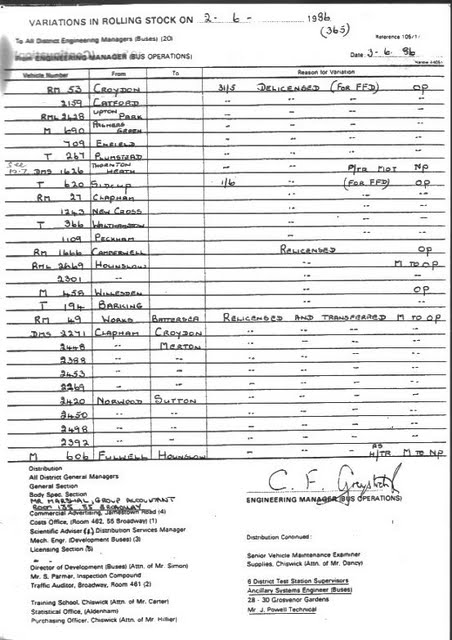 VARIATIONS IN ROLLING STOCK ON 2-6- 1986
(365)
To All District Engineering Managers (Buses) (20)
Reference 105/1
From ENGINEERING MANAGER (BUS OPERATIONS)
Date 3-6. 86
Vehicle Number From To Reason for Variation
RM 53 CROYDON 31/5 DELICENSED (FOR FFD) OP
2159 CATFORD -- -- -- --
RML 2628 UPTON PARK -- -- -- --
M 690 PALMERS GREEN -- -- -- --
709 ENFIELD -- -- -- --
T 267 PLUMSTEAD -- -- -- --
DMS 1626 THORNTON HEATH -- -- P/TR MOT NP
T 620 SIDCUP 1/6 -- (FOR FFD) OP
RM 27 CLAPHAM -- -- --
1243 NEW CROSS -- -- -- --
T 366 WALTHAMSTOW -- -- -- --
1109 PECKHAM -- -- -- --
RM 1666 CAMBERWELL RELICENSED OP
RML 2669 HOUNSLOW -- M TO OP
2301 -- -- --
M 458 WILLESDEN -- OP
T 194 BARKING -- --
RM 49 WORKS BATTERSEA RELICENSED AND TRANSFERRED M TO OP
DMS 2271 CLAPHAM CROYDON -- -- -- --
2448 -- MERTON -- -- -- --
2388 -- -- -- -- -- --
2453 -- -- -- -- -- --
2269 -- -- -- -- -- --
2420 NORWOOD SUTTON -- -- -- --
2450 -- -- -- -- -- --
2498 -- -- -- -- -- --
2392 -- -- -- -- -- --
M 606 FULWELL HOUNSLOW -- -- AS H/TR M TO NP
Distribution
All District General Managers
General Section
Body Spec. Section
MR MARSHAL, GROUP ACCOUNTANT
ROOM 135 55 BROADWAY
Commercial Advertising, Jamestown Road (4)
Costs Office, (Room 462, 55 Broadway) (1)
Scientific Adviser (1) Distribution Services Manager
Mech. Engr. (Development Buses) (3)
Licensing Section (5)
Director of Development (Buses) (Attn. of Mr. Simon)
Mr. S. Parmar, Inspection Compound
Traffic Auditor, Broadway, Room 461 (2)
Training School, Chiswick (Attn. of Mr. Carter)
Statistical Office, (Aldenham)
Purchasing Officer, Chiswick (Attn. of Mr. Hillier)
ENGINEERING MANAGER (BUS OPERATIONS)
Distribution Continued :
Senior Vehicle Maintenance Examiner
Supplies, Chiswick (Attn. of Mr. Dancy)
6 District Test Station Supervisors
Ancillary Systems Engineer (Buses)
28 - 30 Grosvenor Gardens
Mr. J. Powell Technical